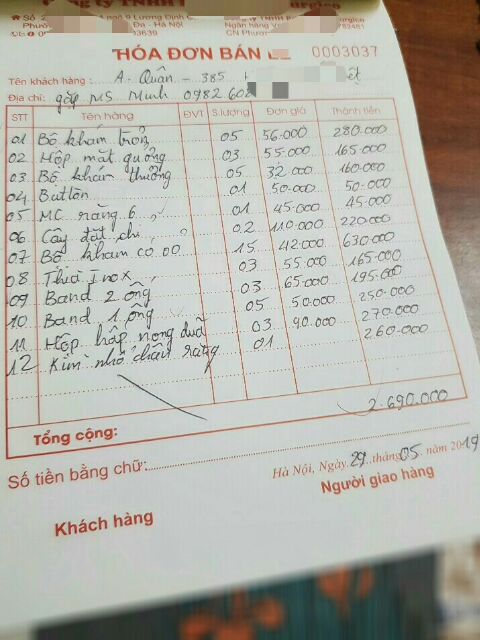 ty TNHH
urgico
9 Lương Định C
Đa - Hà Nội
Ngân hàng V
782481
03639
CN Phươn
HÓA ĐƠN BÁN LẺ 0003037
Tên khách hàng : A. Quân - 385
Địa chỉ: gặp MS Minh 0982 602
STT Tên hàng ĐVT S.lượng Đơn giá Thành tiền
01 Bộ khám tròn 05 56.000 280.000
02 Hộp mát quông 03 55.000 165.000
03 Bộ khám thường 05 32 000 160.000
04 Button 01 50.000 50.000
05 MC răng 6 01 45.000 45.000
06 Cây đặt chỉ 02 110.000 220.000
07 Bộ kham co oo 15 42.000 630.000
08 Thìa Inox 03 55.000 165.000
09 Band 2 ống 03 65.000 195.000
10 Band 1 ống 05 50.000 250.000
11 Hộp hấp nong dưa 03 90.000 270.000
12 Kìm nhổ chân răng 01 260.000
2.690.000
Tổng cộng:
Số tiền bằng chữ:
Hà Nội, Ngày 29 tháng 05 năm 2019
Khách hàng Người giao hàng